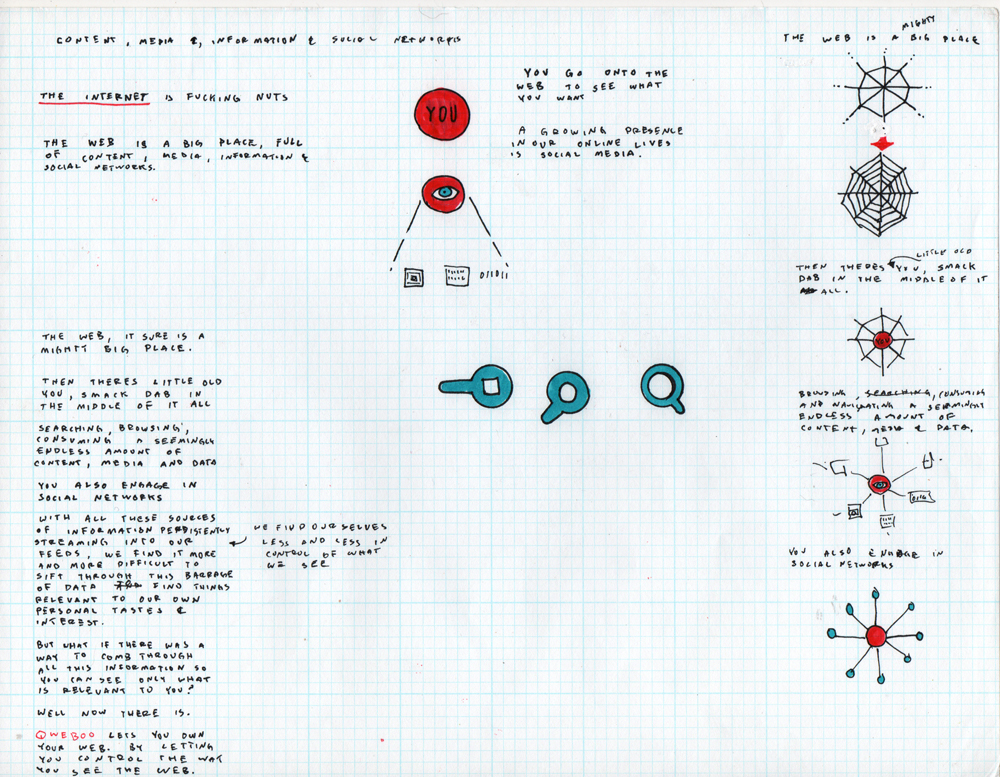 CONTENT, MEDIA &, INFORMATION & SOCIAL NETWORKS
THE INTERNET IS FUCKING NUTS
THE WEB IS A BIG PLACE, FULL
OF CONTENT, MEDIA, INFORMATION &
SOCIAL NETWORKS.
THE WEB, IT SURE IS A
MIGHTY BIG PLACE.
THEN THERES LITTLE OLD
YOU, SMACK DAB IN
THE MIDDLE OF IT ALL
SEARCHING, BROWSING,
CONSUMING A SEEMINGLY
ENDLESS AMOUNT OF
CONTENT, MEDIA AND DATA
YOU ALSO ENGAGE IN
SOCIAL NETWORKS
WITH ALL THESE SOURCES
OF INFORMATION PERSISTENTLY
STREAMING INTO OUR
FEEDS, WE FIND IT MORE
AND MORE DIFFICULT TO
SIFT THROUGH THIS BARRAGE
OF DATA FIND THINGS
RELEVANT TO OUR OWN
PERSONAL TASTES &
INTEREST.
BUT WHAT IF THERE WAS A
WAY TO COMB THROUGH
ALL THIS INFORMATION SO
YOU CAN SEE ONLY WHAT
IS RELEVANT TO YOU?
WELL NOW THERE IS.
QWEBOO LETS YOU OWN
YOUR WEB. BY LETTING
YOU CONTROL THE WAY
YOU SEE THE WEB.
WE FIND OURSELVES
LESS AND LESS IN
CONTROL OF WHAT
WE SEE
YOU
011011
YOU GO ONTO THE
WEB TO SEE WHAT
YOU WANT
A GROWING PRESENCE
IN OUR ONLINE LIVES
IS SOCIAL MEDIA.
MIGHTY
THE WEB IS A BIG PLACE
LITTLE OLD
THEN THERES YOU, SMACK
DAB IN THE MIDDLE OF IT
ALL.
YOU
SEARCHING, CONSUMING
AND NAVIGATING A SEEMINGLY
ENDLESS AMOUNT OF
CONTENT, MEDIA & DATA.
YOU ALSO ENGAGE IN
SOCIAL NETWORKS